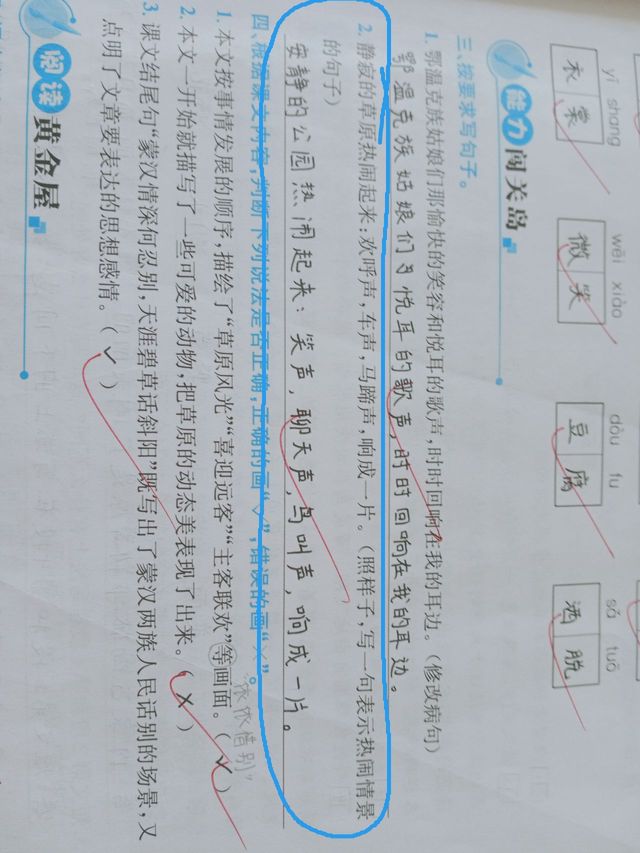 yī shang
wēi xiào
dòu fu
sǎ tuō
衣裳
微笑
豆腐
洒脱
能力闯关岛
三、按要求写句子。
1. 鄂温克族姑娘们那愉快的笑容和悦耳的歌声,时时回响在我的耳边。(修改病句)
鄂温克族姑娘们那悦耳的歌声,时时回响在我的耳边。
2. 静寂的草原热闹起来:欢呼声,车声,马蹄声,响成一片。(照样子,写一句表示热闹情景
的句子)
安静的公园热闹起来:笑声,聊天声,鸟叫声,响成一片。
四、根据课文内容,判断下列说法是否正确,正确的画“√”,错误的画“×”。
1. 本文按事情发展的顺序,描绘了“草原风光”“喜迎远客”“主客联欢”等画面。(√)
“依依惜别”
2. 本文一开始就描写了一些可爱的动物,把草原的动态美表现了出来。(×)
3. 课文结尾句“蒙汉情深何忍别,天涯碧草话斜阳”既写出了蒙汉两族人民话别的场景,又
点明了文章要表达的思想感情。(√)
阅读黄金屋